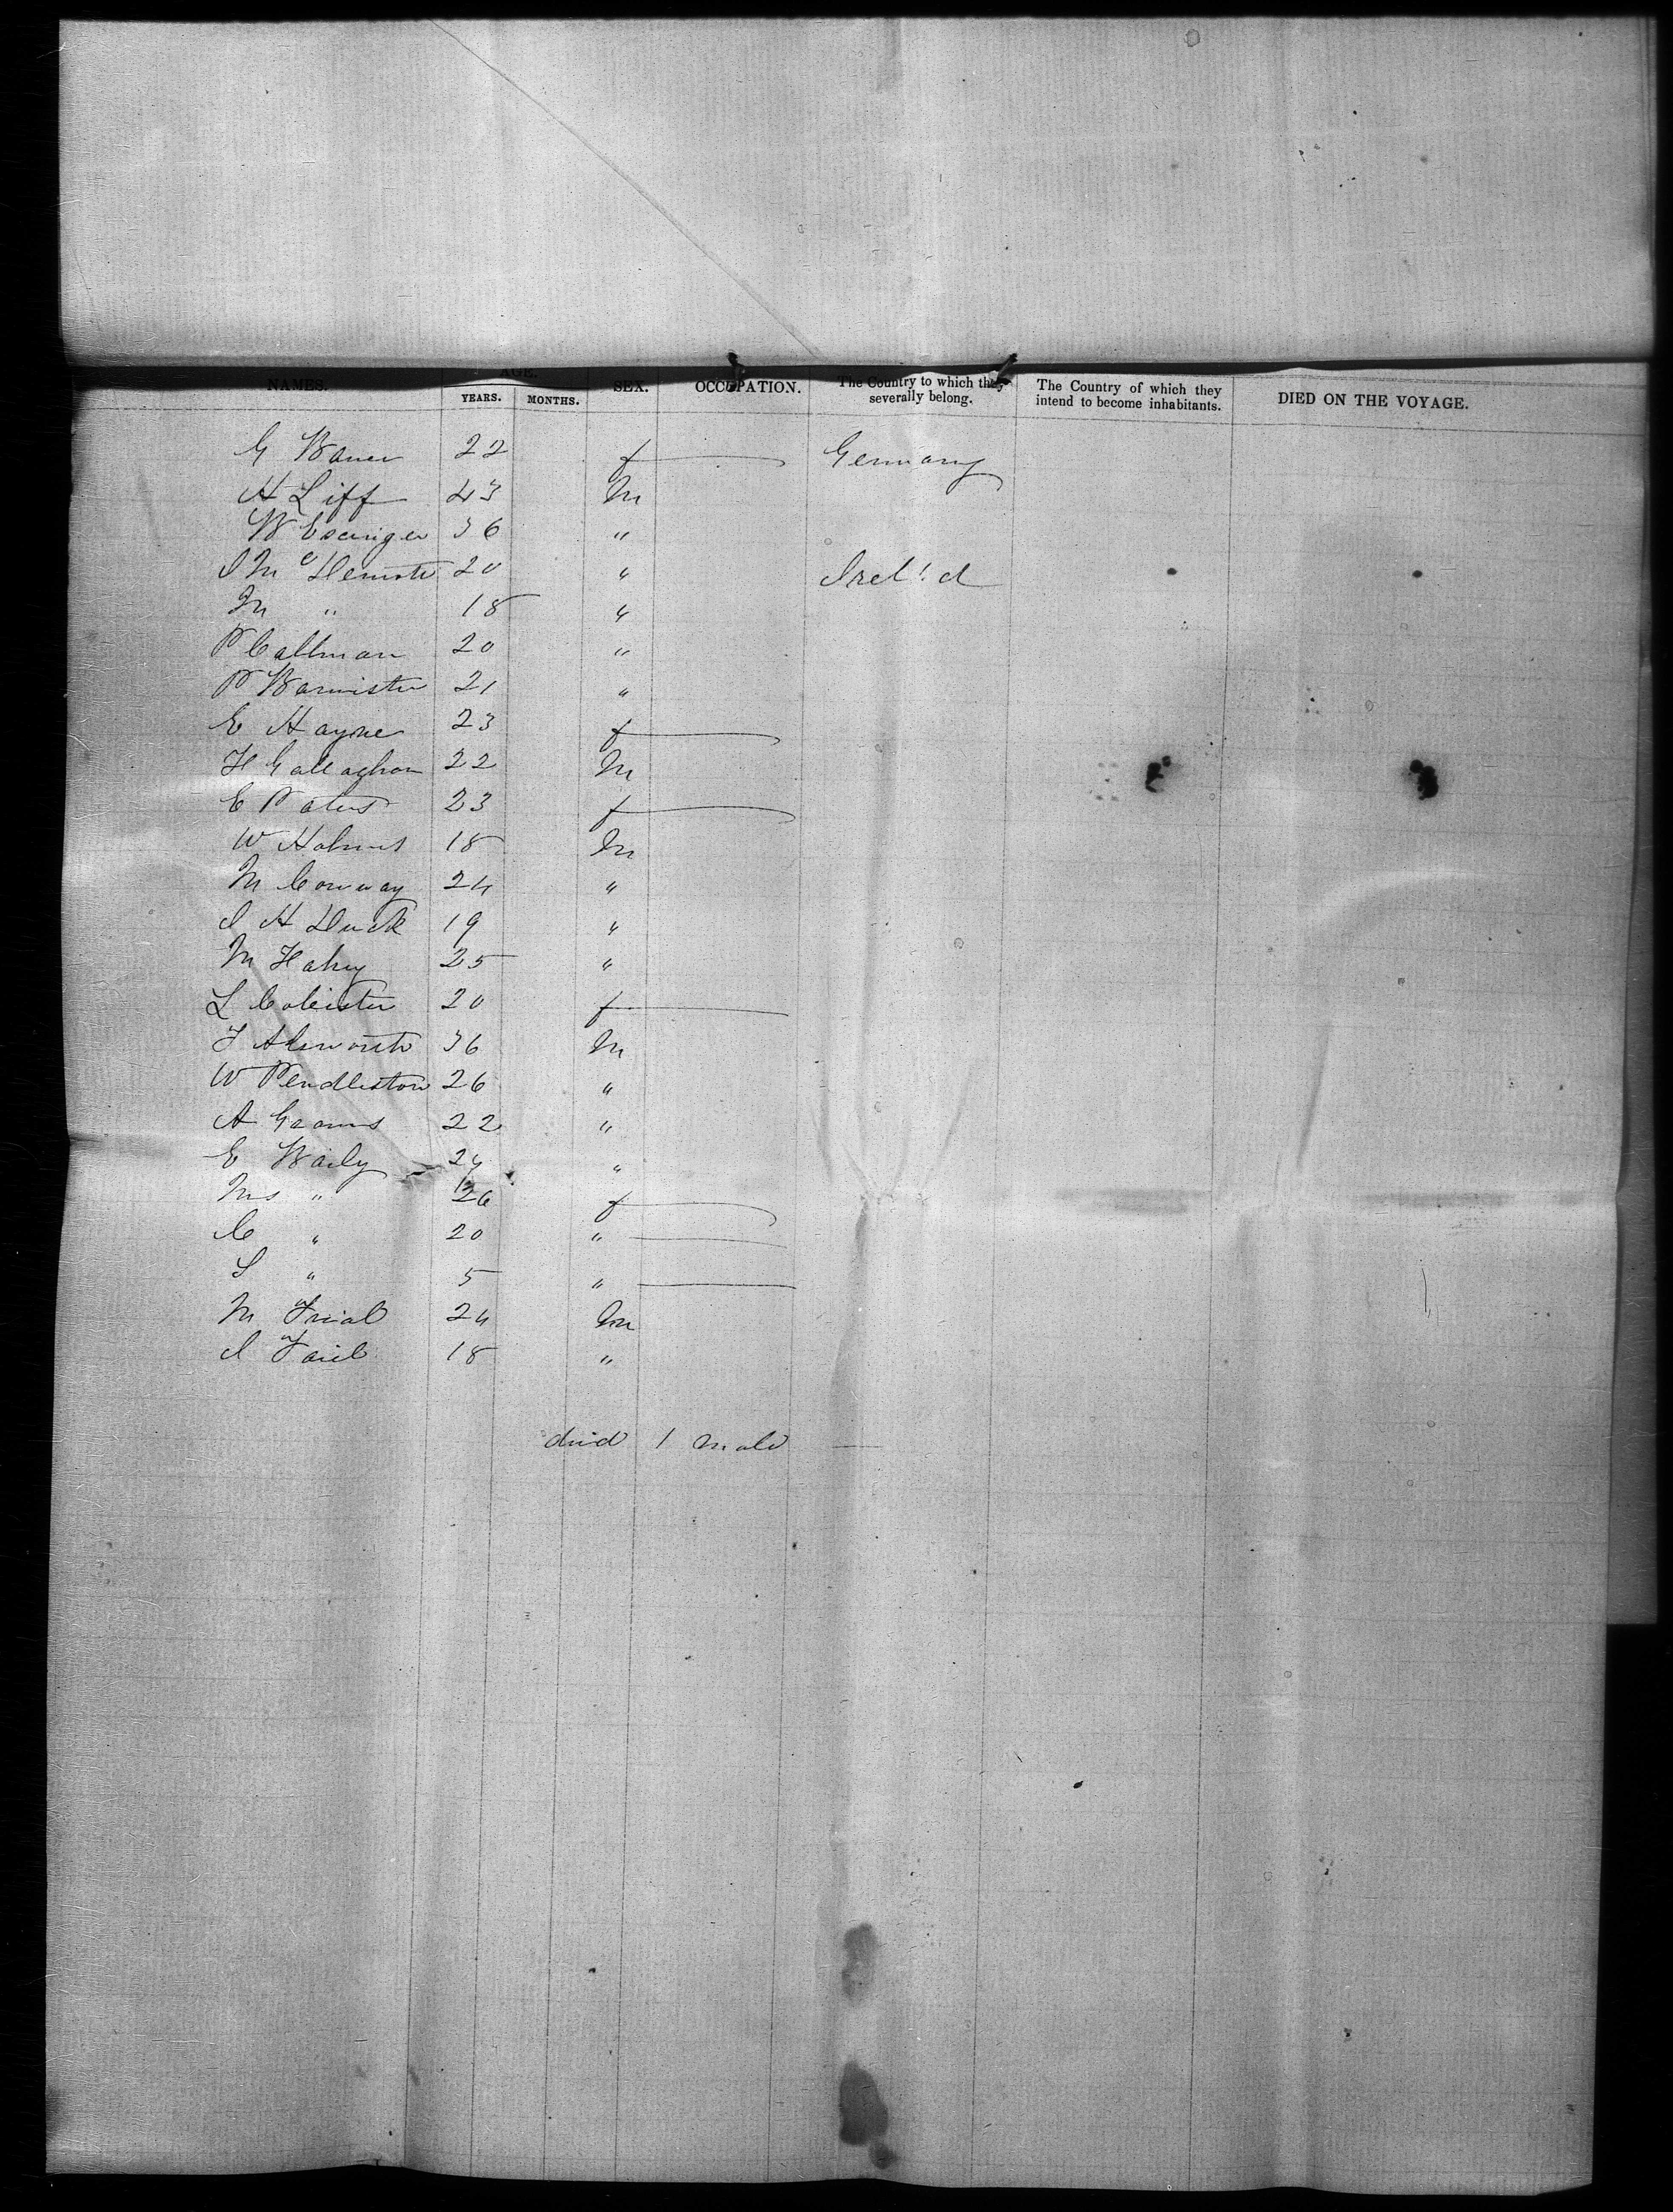 NAMES. AGE. YEARS. MONTHS. SEX. OCCUPATION. The Country to which they severally belong. The Country of which they intend to become inhabitants. DIED ON THE VOYAGE.
G Bauer 22 f Germany
H Liff 43 M
W 36 "
J Mc 20 " Irel'd
M " 18 "
P Callman 20 "
P Bannister 21 "
E Hayne 23 f
H Gallaghan 22 M
E Paters 23 f
W Holmes 18 M
M Conway 24 "
J H Duck 19 "
M Fahey 25 "
L 20 f
F 36 M
W Pendleston 26 "
A 22 "
E Baily 24 "
Mrs " 26 f
C " 20 "
S " 5 "
M Frial 24 M
J 18 "
died 1 male